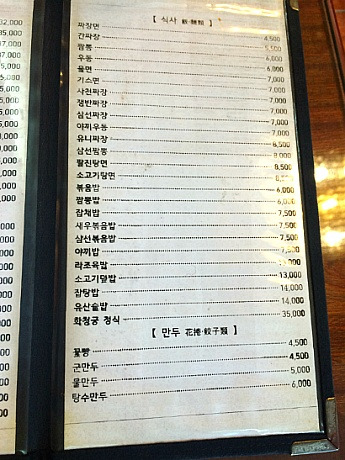 [ 식사 飯·麵類 ]
짜장면 4,500
간짜장 5,500
짬뽕 6,000
우동 6,000
울면 7,000
기스면 7,000
사천짜장 7,000
쟁반짜장 7,000
삼선짜장 7,000
야끼우동 7,000
유니짜장 8,500
삼선짬뽕 8,000
팔진탕면 8,500
소고기탕면
볶음밥 6,000
짬뽕밥 6,000
잡채밥 7,500
새우볶음밥 7,500
삼선볶음밥 7,500
야끼밥
라조육밥 13,000
소고기덮밥 13,000
잡탕밥 14,000
유산슬밥 14,000
화청궁 정식 35,000
[ 만두 花捲·餃子類 ]
꽃빵 4,500
군만두 4,500
물만두 5,000
탕수만두 6,000